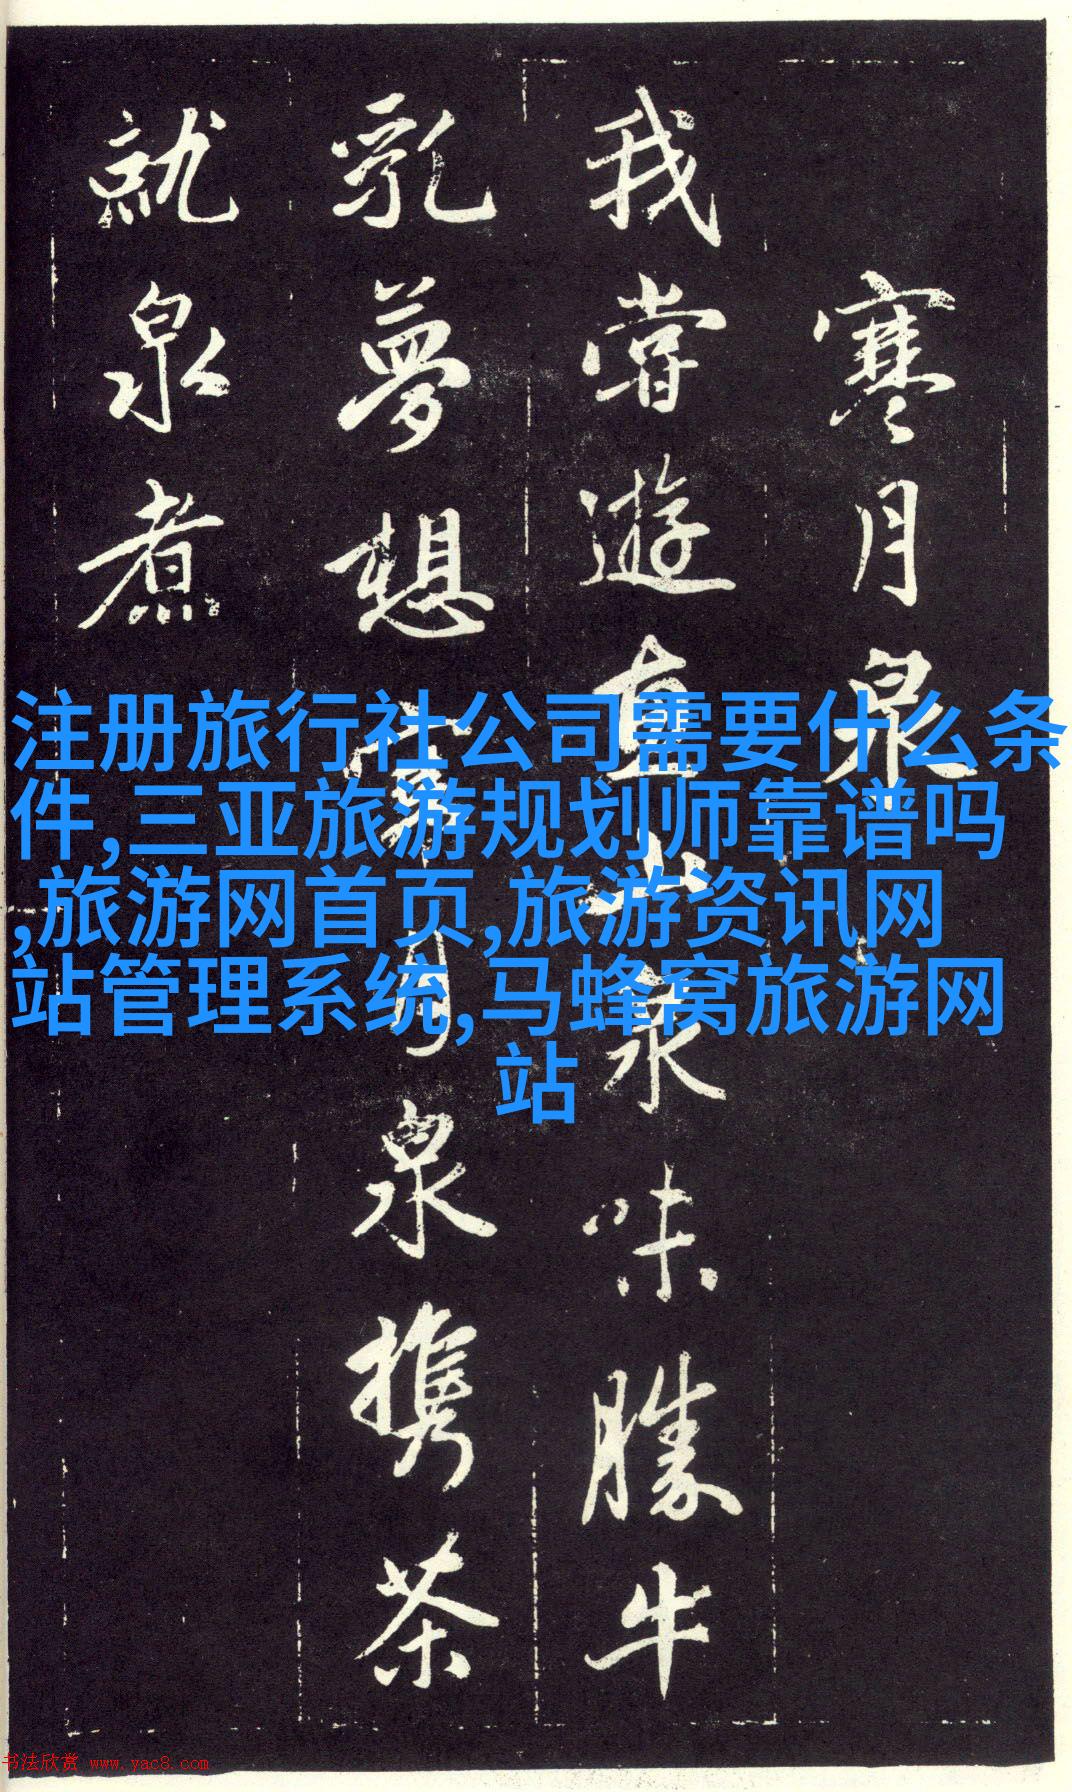 寒月泉
我嘗遊山泉味勝牛
乳夢想寒月泉攜茶
就泉煮
注册旅行社公司需要什么条
件,三亚旅游规划师靠谱吗
,旅游网首页,旅游资讯网
站管理系统,马蜂窝旅游网
站
书法欣赏 www.yac8.com